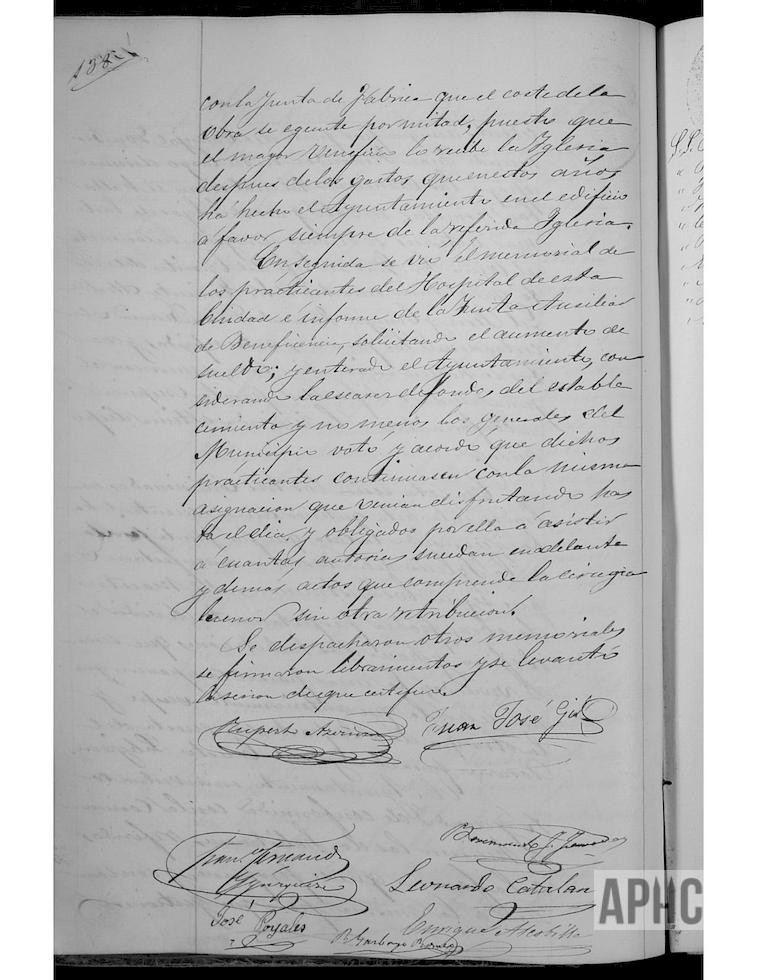 con la Junta de Fabrica que el coste de la
Obra se egecute por mitad, puesto que
el mayor Veneficio lo recibe la Iglesia
despues de los gastos que en estos años
há hecho el Ayuntamiento en el edificio
á favor siempre de la referida Iglesia.
En seguida se vió el memorial de
los practicantes del Hospital de esta
Ciudad é informe de la Junta Ausiliar
de Beneficencia, solicitando el aumento de
sueldo; y enterado el Ayuntamiento, con
siderando la escasez de fondos del estable
cimiento y no menos los generales del
Municipio votó y acordó que dichos
practicantes continuasen con la misma
asignacion que venian disfrutando has
ta el dia, y obligados por ella á asistir
á cuantas autorias sucedan en adelante
y demás actos que comprende la cirugia
menor sin otra retribucion.
Se despacharon otros memoriales
se firmaron libramientos y se levantó
la sesion de que certifico.
Ruperto Juan José Gil
Leonardo Catalan
José Royales Enrique
APHC